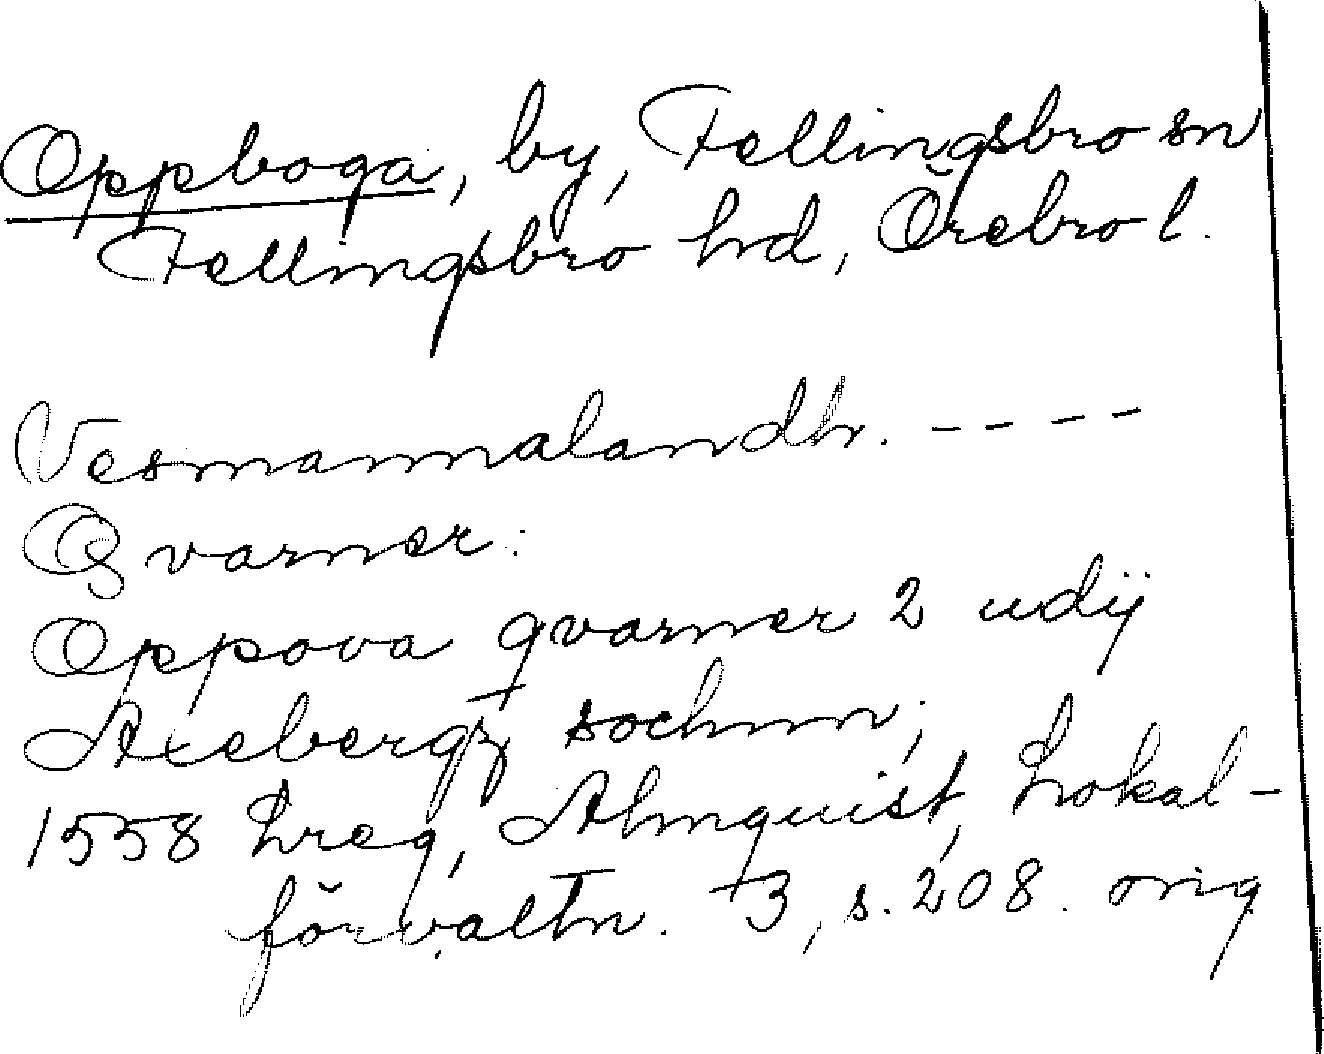 Oppboga, by, Fellingsbro sn
Fellingsbro hd, Örebro l.
Vesmannalandh. ----
Qvarner:
Oppova qvarner 2 udij
Axebergz sochnn;
1558 Lreg, Almquist, Lokal-
förvaltn. 3, s. 208. orig